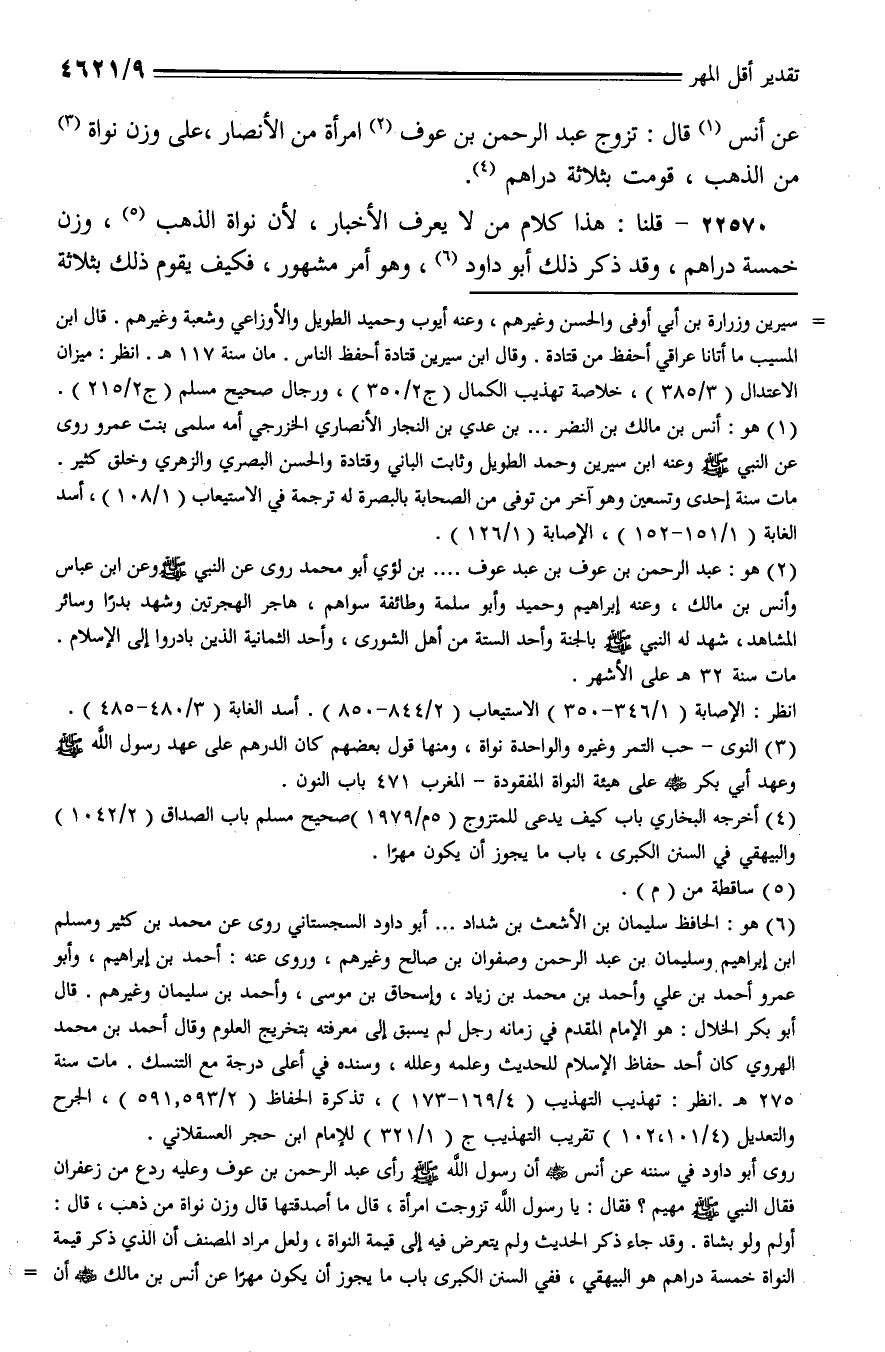 تقدير أقل المهر ٤٦٢١/٩
عن أنس (١) قال : تزوج عبد الرحمن بن عوف (٢) امرأة من الأنصار ،على وزن نواة (٣)
من الذهب ، قومت بثلاثة دراهم (٤).
٢٢٥٧٠ – قلنا : هذا كلام من لا يعرف الأخبار ، لأن نواة الذهب (٥) ، وزن
خمسة دراهم ، وقد ذكر ذلك أبو داود (٦) ، وهو أمر مشهور ، فكيف يقوم ذلك بثلاثة
= سيرين وزرارة بن أبي أوفى والحسن وغيرهم ، وعنه أيوب وحميد الطويل والأوزاعي وشعبة وغيرهم . قال ابن
المسيب ما أتانا عراقي أحفظ من قتادة . وقال ابن سيرين قتادة أحفظ الناس . مان سنة ١١٧ هـ . انظر : ميزان
الاعتدال ( ٣٨٥/٣ ) ، خلاصة تهذيب الكمال ( ج٣٥٠/٢ ) ، ورجال صحيح مسلم ( ج٢١٥/٢ ) .
(١) هو : أنس بن مالك بن النضر ... بن عدي بن النجار الأنصاري الخزرجي أمه سلمى بنت عمرو روى
عن النبي ﷺ وعنه ابن سيرين وحمد الطويل وثابت الباني وقتادة والحسن البصري والزهري وخلق كثير .
مات سنة إحدى وتسعين وهو آخر من توفى من الصحابة بالبصرة له ترجمة في الاستيعاب ( ١٠٨/١ ) ، أسد
الغابة ( ١٥١/١-١٥٢ ) ، الإصابة ( ١٢٦/١ ) .
(٢) هو : عبد الرحمن بن عوف بن عبد عوف .... بن لؤي أبو محمد روى عن النبي ﷺ وعن ابن عباس
وأنس بن مالك ، وعنه إبراهيم وحميد وأبو سلمة وطائفة سواهم ، هاجر الهجرتين وشهد بدرًا وسائر
المشاهد ، شهد له النبي ﷺ بالجنة وأحد الستة من أهل الشورى ، وأحد الثمانية الذين بادروا إلى الإسلام .
مات سنة ٣٢ هـ على الأشهر .
انظر : الإصابة ( ٣٤٦/١-٣٥٠ ) الاستيعاب ( ٨٤٤/٢-٨٥٠ ) . أسد الغابة ( ٤٨٠/٣-٤٨٥ ) .
(٣) النوى – حب التمر وغيره والواحدة نواة ، ومنها قول بعضهم كان الدرهم على عهد رسول اللَّه ﷺ
وعهد أبي بكر ﷺ على هيئة النواة المفقودة – المغرب ٤٧١ باب النون .
(٤) أخرجه البخاري باب كيف يدعى للمتزوج ( ٥م/١٩٧٩ )صحيح مسلم باب الصداق ( ١٠٤٢/٢ )
والبيهقي في السنن الكبرى ، باب ما يجوز أن يكون مهرًا .
(٥) ساقطة من ( م ) .
(٦) هو : الحافظ سليمان بن الأشعث بن شداد ... أبو داود السجستاني روى عن محمد بن كثير ومسلم
ابن إبراهيم وسليمان بن عبد الرحمن وصفوان بن صالح وغيرهم ، وروى عنه : أحمد بن إبراهيم ، وأبو
عمرو أحمد بن علي وأحمد بن محمد بن زياد ، وإسحاق بن موسى ، وأحمد بن سليمان وغيرهم . قال
أبو بكر الخلال : هو الإمام المقدم في زمانه رجل لم يسبق إلى معرفته بتخريج العلوم وقال أحمد بن محمد
الهروي كان أحد حفاظ الإسلام للحديث وعلمه وعلله ، وسنده في أعلى درجة مع التنسك . مات سنة
٢٧٥ هـ .انظر : تهذيب التهذيب ( ١٦٩/٤-١٧٣ ) ، تذكرة الحفاظ ( ٥٩١,٥٩٣/٢ ) ، الجرح
والتعديل (١٠٢،١٠١/٤ ) تقريب التهذيب ج ( ٣٢١/١ ) للإمام ابن حجر العسقلاني .
روى أبو داود في سننه عن أنس ﷺ أن رسول اللَّه ﷺ رأى عبد الرحمن بن عوف وعليه ردع من زعفران
فقال النبي ﷺ مهيم ؟ فقال : يا رسول اللَّه تزوجت امرأة ، قال ما أصدقتها قال وزن نواة من ذهب ، قال :
أولم ولو بشاة . وقد جاء ذكر الحديث ولم يتعرض فيه إلى قيمة النواة ، ولعل مراد المصنف أن الذي ذكر قيمة
النواة خمسة دراهم هو البيهقي ، ففي السنن الكبرى باب ما يجوز أن يكون مهرًا عن أنس بن مالك ﷺ أن =